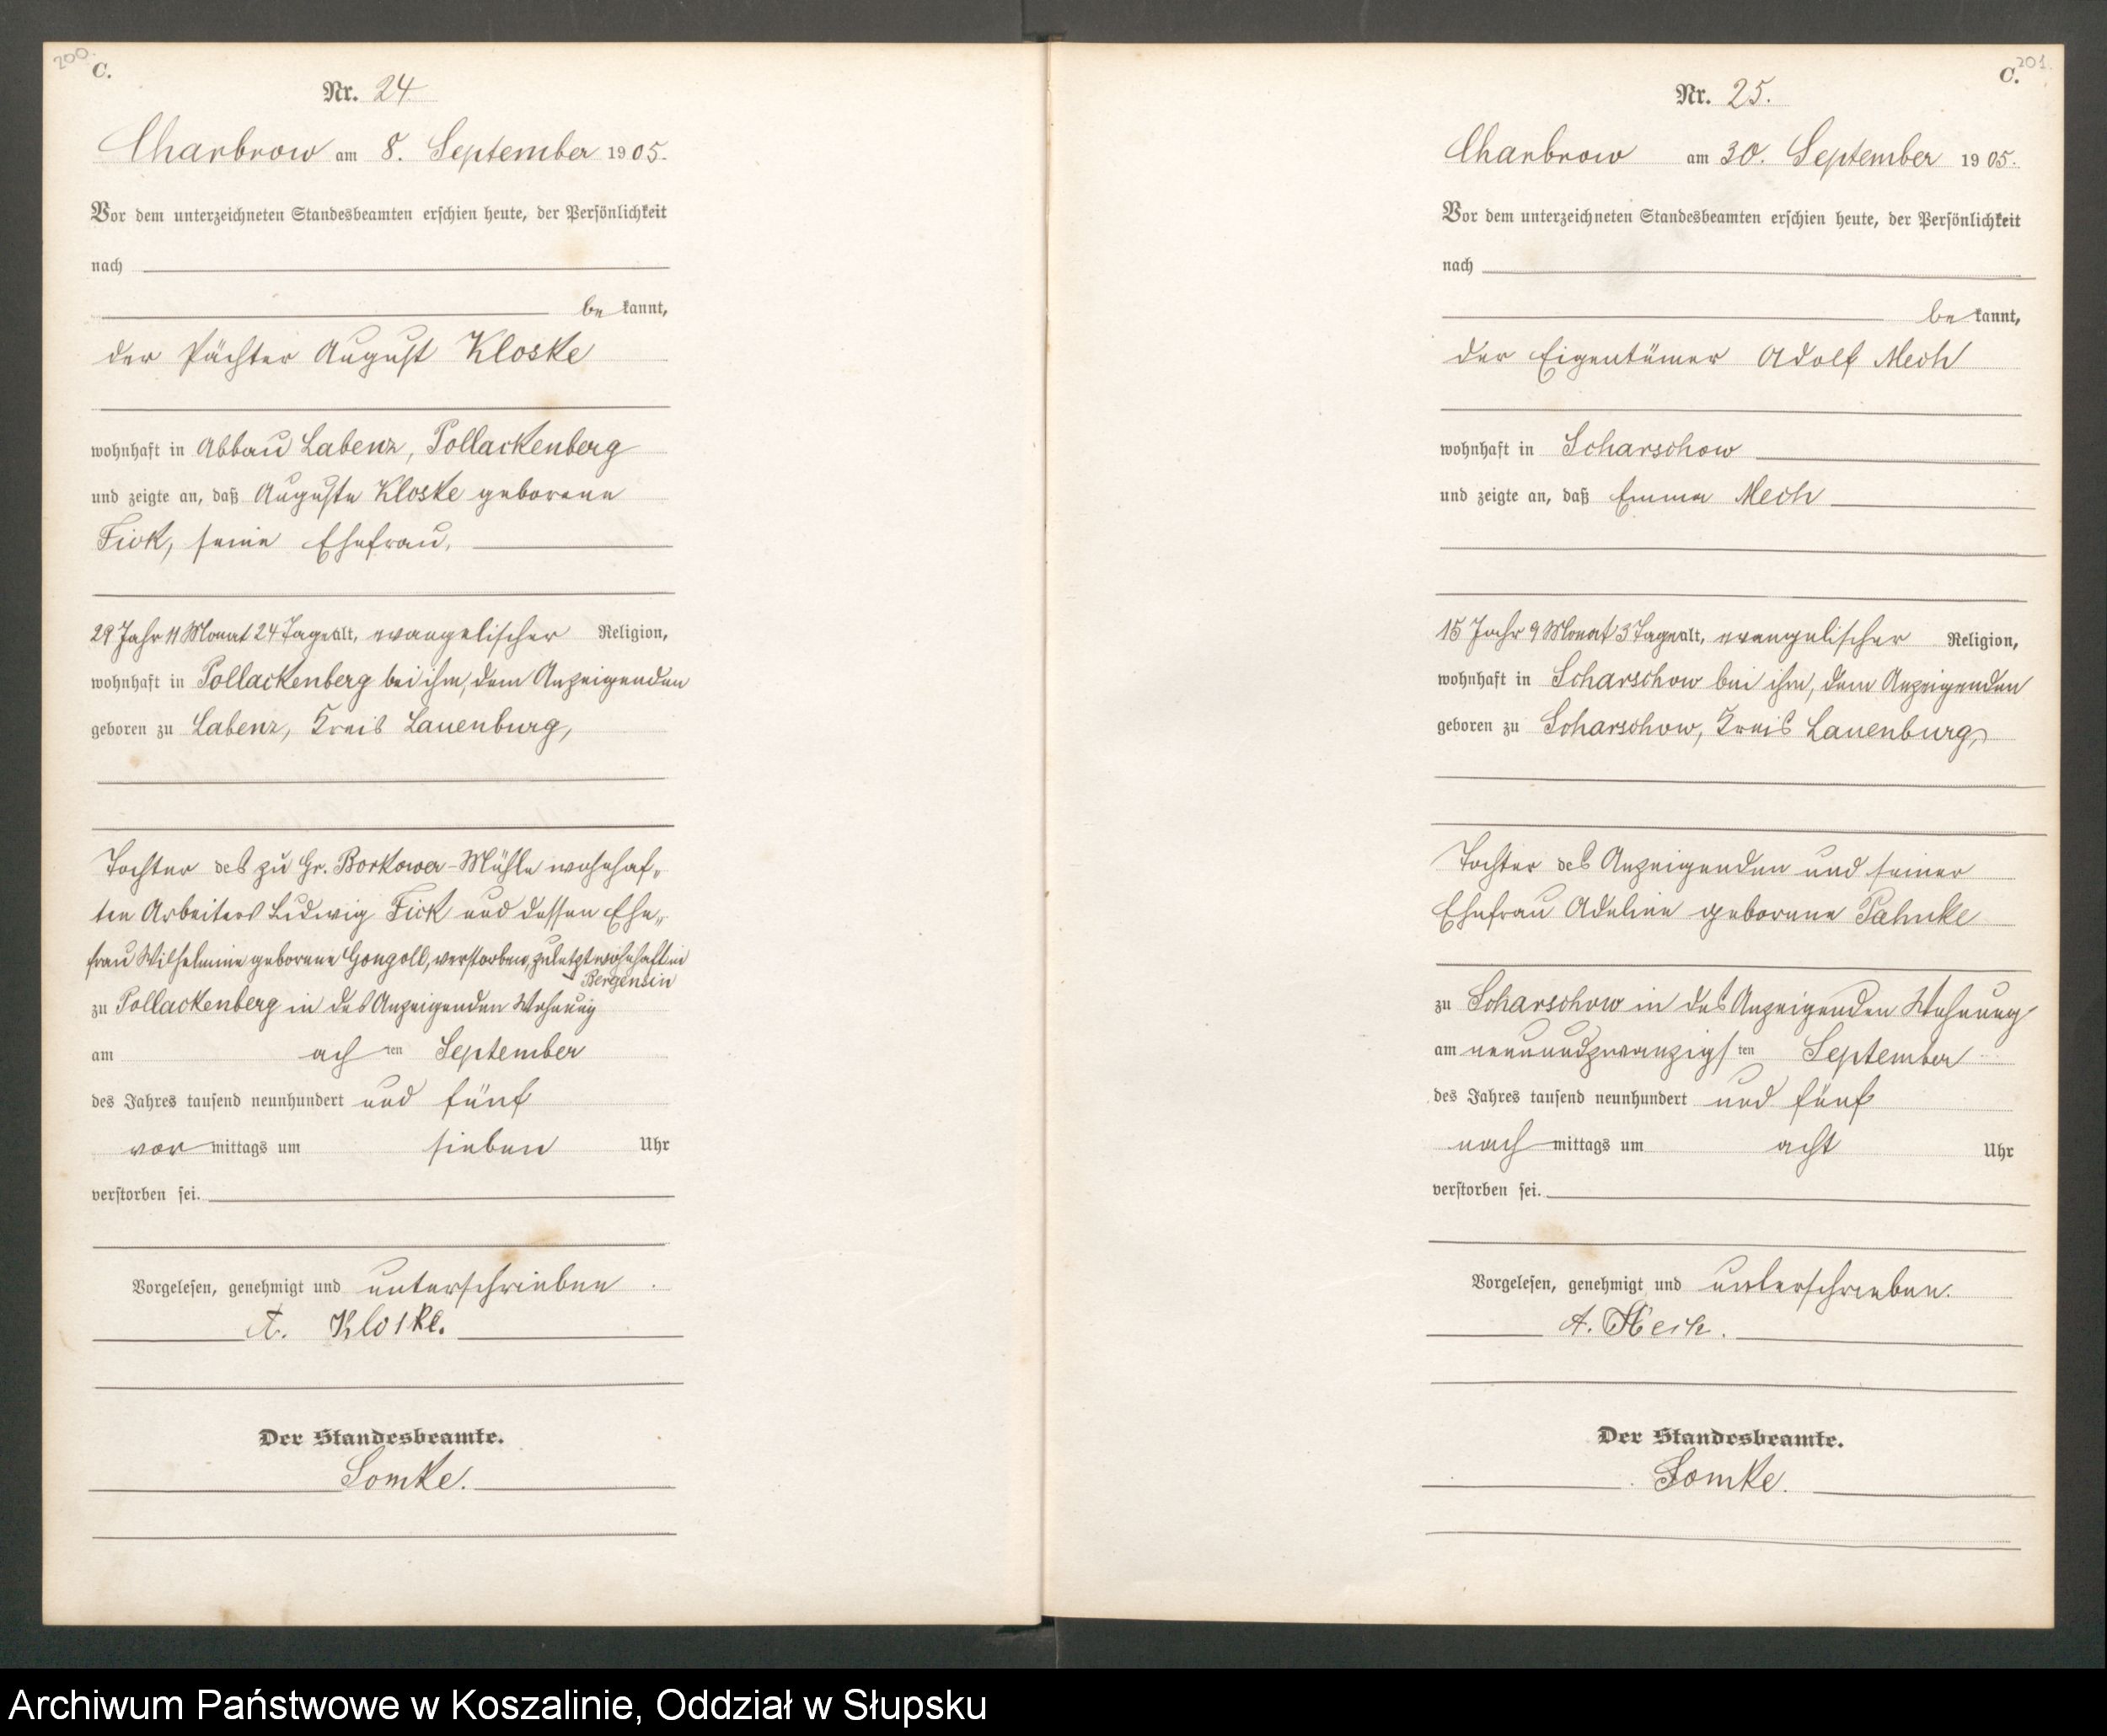 200.
C.
Nr. 24
Charbrow am 8. September 1905.
Vor dem unterzeichneten Standesbeamten erschien heute, der Persönlichkeit
nach
be kannt,
der Pächter August Kloske
wohnhaft in Abbau Labenz, Pollackenberg
und zeigte an, daß Auguste Kloske geborene
Fick, seine Ehefrau,
29 Jahr 11 Monat 24 Tage alt, evangelischer Religion,
wohnhaft in Pollackenberg bei ihm, dem Anzeigenden
geboren zu Labenz, Kreis Lauenburg,
Tochter des zu Gr. Borkower-Mühle wohnhaf„
ten Arbeiters Ludwig Fick und dessen Ehe„
frau Wilhelmine geborene Gongoll, verstorben, zuletzt wohnhaft in
Bergensin
zu Pollackenberg in des Anzeigenden Wohnung
am ach ten September
des Jahres tausend neunhundert und fünf
vor mittags um sieben Uhr
verstorben sei.
Vorgelesen, genehmigt und unterschrieben.
A. Kloske.
Der Standesbeamte.
Lomke.
201.
C.
Nr. 25.
Charbrow am 30. September 1905.
Vor dem unterzeichneten Standesbeamten erschien heute, der Persönlichkeit
nach
be kannt,
der Eigentümer Adolf Mech
wohnhaft in Scharschow
und zeigte an, daß Emma Mech
15 Jahr 9 Monat 3 Tage alt, evangelischer Religion,
wohnhaft in Scharschow bei ihm, dem Anzeigenden
geboren zu Scharschow, Kreis Lauenburg,
Tochter des Anzeigenden und seiner
Ehefrau Adeline geborene Pahnke
zu Scharschow in des Anzeigenden Wohnung
am neunundzwanzigs ten September
des Jahres tausend neunhundert und fünf
nach mittags um acht Uhr
verstorben sei.
Vorgelesen, genehmigt und unterschrieben.
A. Mech.
Der Standesbeamte.
Lomke.
Archiwum Państwowe w Koszalinie, Oddział w Słupsku